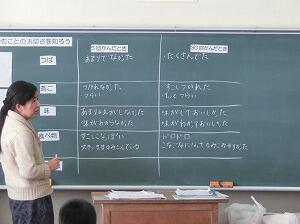 むことの大切さを知ろう
5回かんだとき
30回かんだとき
つば
あまりでなかった
たくさんでた
あご
つかれなかった
つらい
すこしつかれた
味
あまり味がしなかった
味がわからなかった
味がしておいしかった
味がわかっておいしかった
食べ物
すこしこなっぽい
大きいままのみこんでいる
ドロドロ
こなごなになってのみこみやすかった